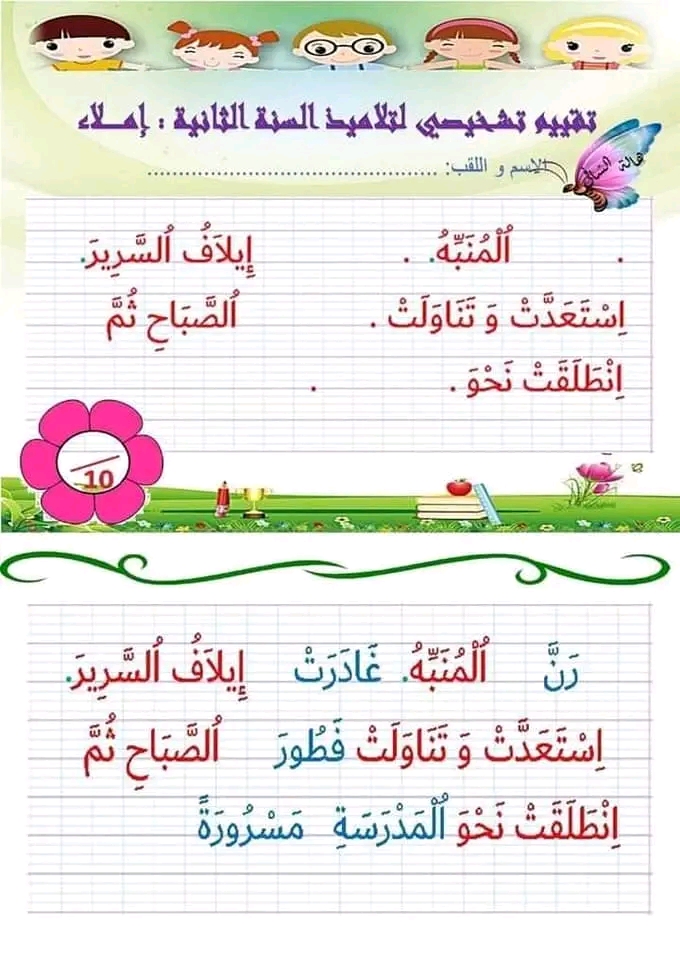 تقييم تشخيصي لتلاميذ السنة الثانية : إملاء
الإسم و اللقب: ............................................
. ٱلْمُنَبِّهُ. . إِيلاَفُ ٱلسَّرِيرَ.
اِسْتَعَدَّتْ وَ تَنَاوَلَتْ . ٱلصَّبَاحِ ثُمَّ
اِنْطَلَقَتْ نَحْوَ . .
10
رَنَّ ٱلْمُنَبِّهُ. غَادَرَتْ إِيلاَفُ ٱلسَّرِيرَ.
اِسْتَعَدَّتْ وَ تَنَاوَلَتْ فَطُورَ ٱلصَّبَاحِ ثُمَّ
اِنْطَلَقَتْ نَحْوَ ٱلْمَدْرَسَةِ مَسْرُورَةً